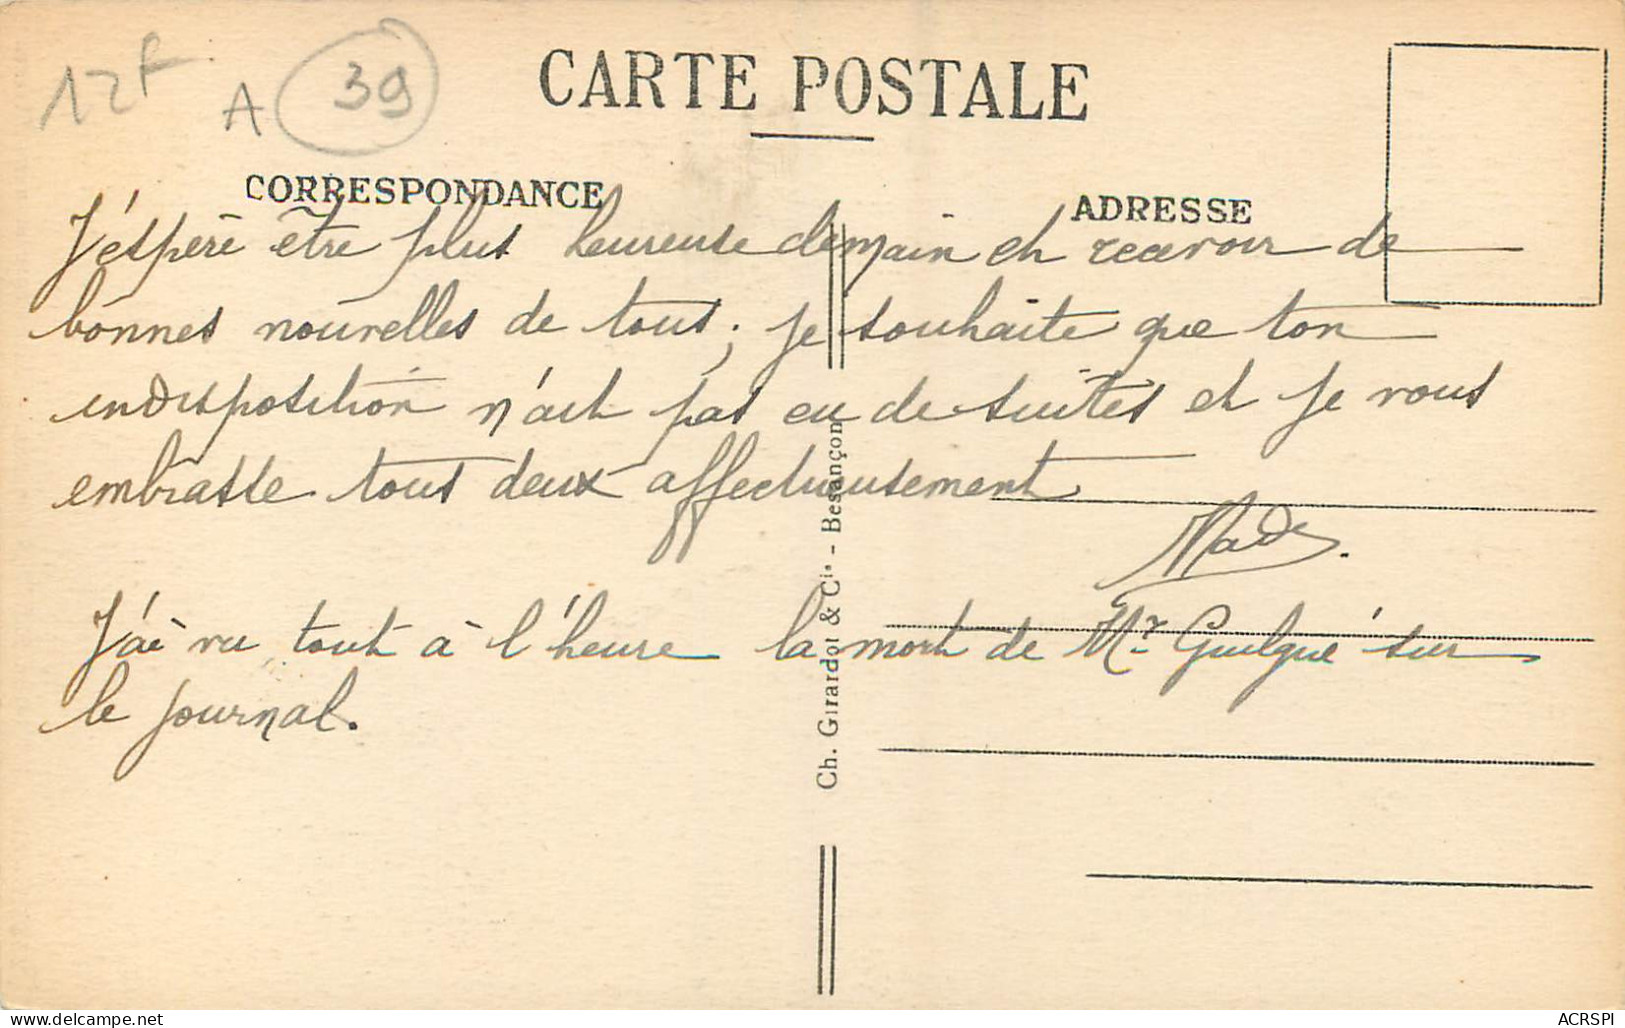 12F
A 39
CARTE POSTALE
CORRESPONDANCE
ADRESSE
J'éspère être plus heureuse demain et recevoir de
bonnes nouvelles de tous; je souhaite que ton
indisposition n'ait pas eu de suites et je vous
embrasse tous deux affectueusement
Mad
J'ai vu tout à l'heure la mort de Mr Guilgué sur
le journal.
Ch. Girardot & Cie - Besançon
delcampe.net
ACRSPI